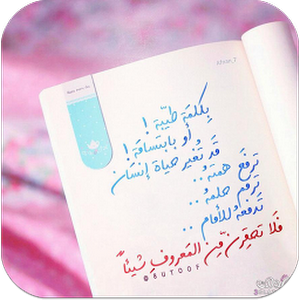 بكلمة طيّبة !
أو بابتسامة !
قد تُغير حياة إنسان
ترفع همته ..
ترمم حلمه ..
تدفعه للأمام ..
فلا تحقرن من المعروف شيئاً
@BUTOOF